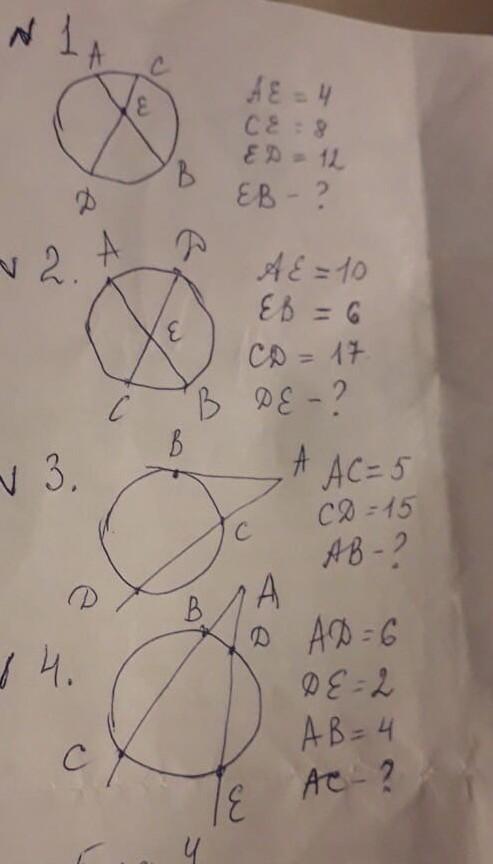 N 1
A C
E
D B
AE = 4
CE = 8
ED = 12
EB - ?
2.
A D
E
C B
AE = 10
EB = 6
CD = 17
DE - ?
3.
B
A
C
D
AC = 5
CD = 15
AB - ?
4.
A
B D
C
E
AD = 6
DE = 2
AB = 4
AC - ?